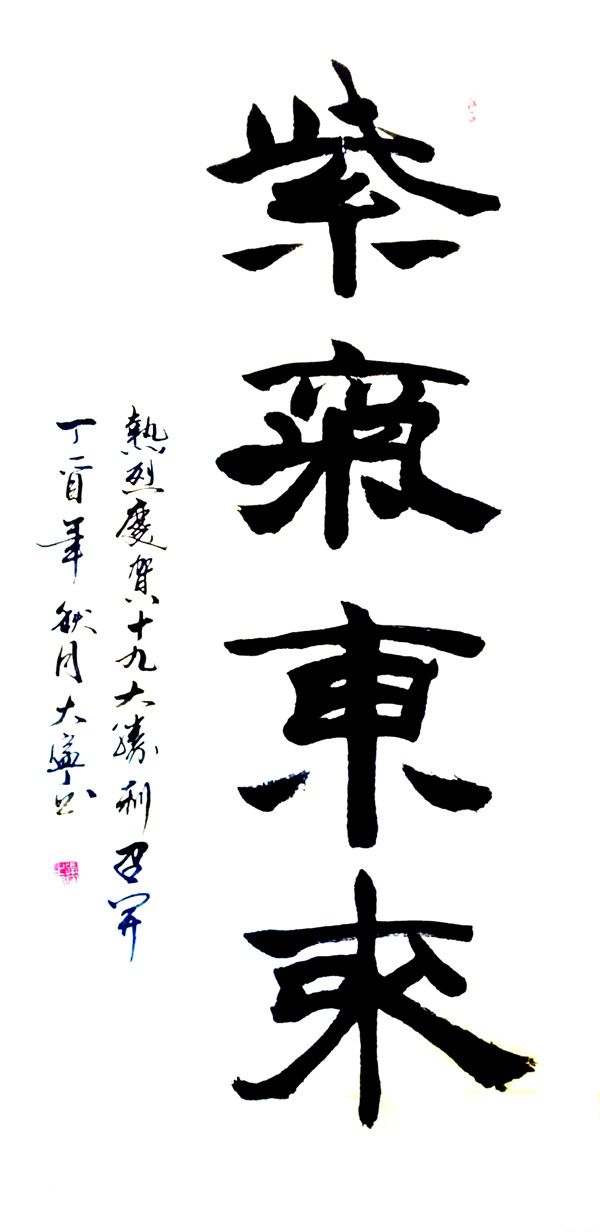 紫氣東來
熱烈慶賀十九大勝利召開
丁酉年秋月大寧书